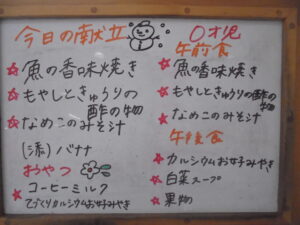 今日の献立
☆魚の香味焼き
☆もやしときゅうりの
酢の物
☆なめこのみそ汁
(添)バナナ
おやつ
☆コーヒーミルク
びっくりカルシウムお好みやき
0才児
午前食
☆魚の香味焼き
☆もやしときゅうりの
酢の物
☆なめこのみそ汁
午後食
☆カルシウムお好みやき
☆白菜スープ
☆果物